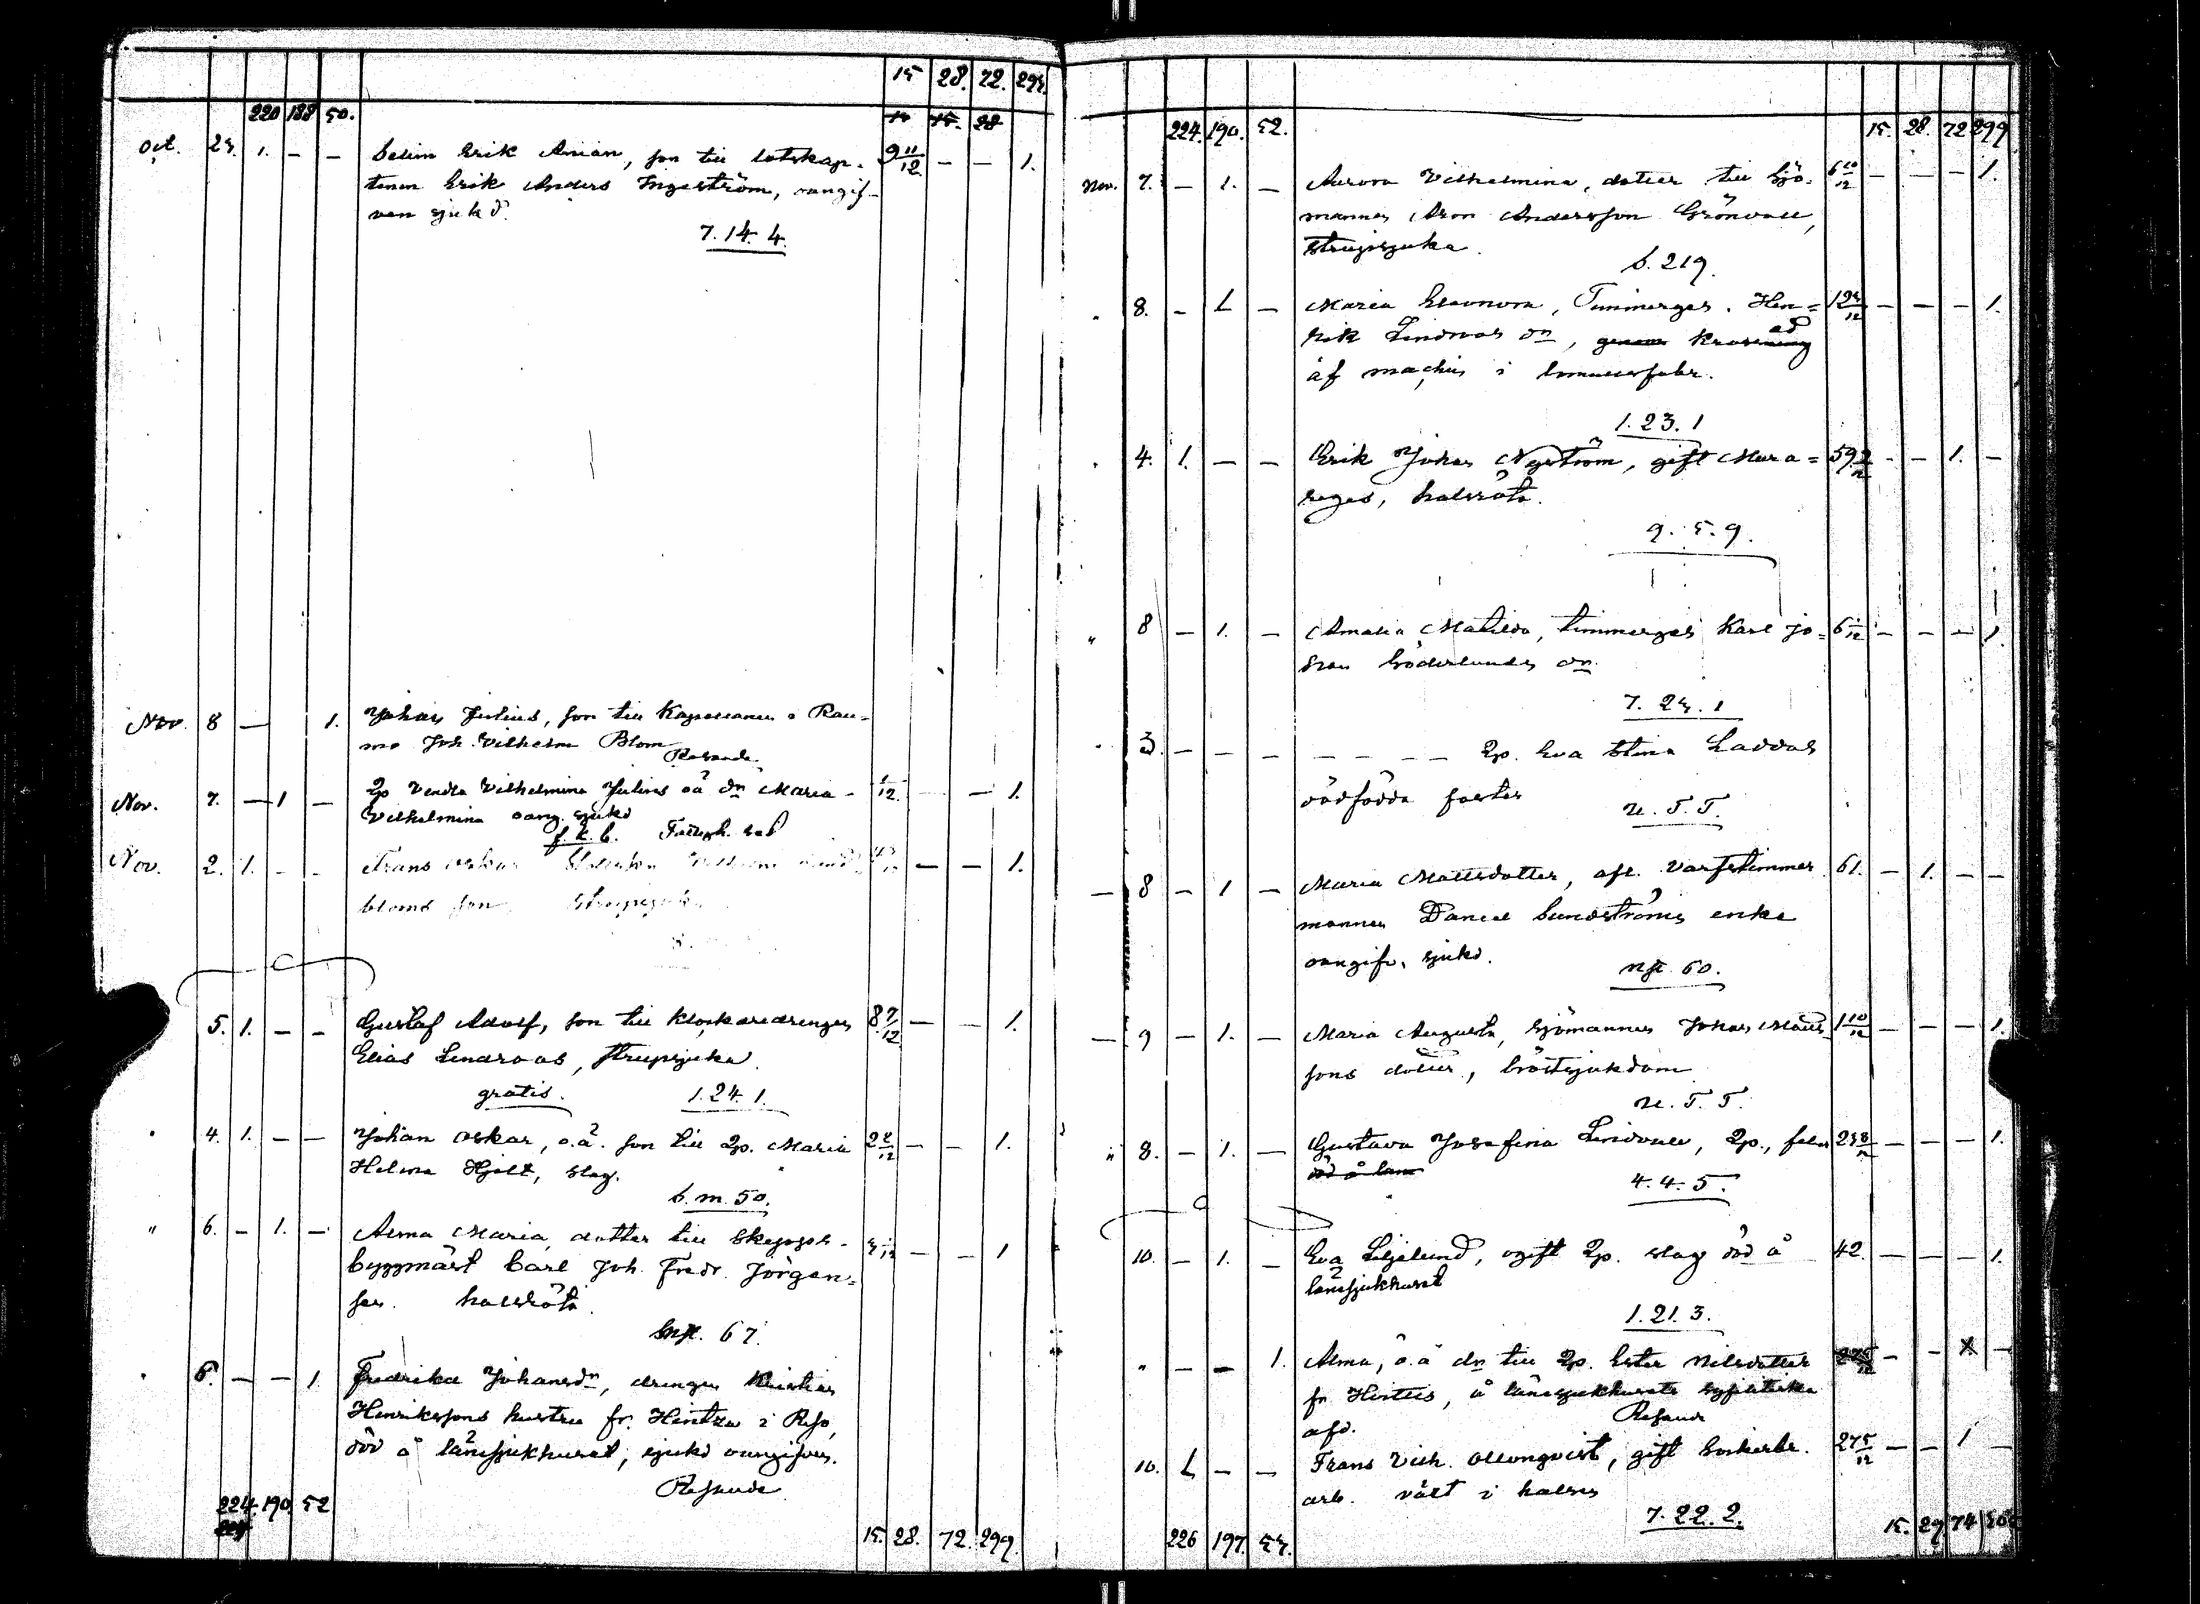 15 28. 72. 295.
220 188 50. 15 15. 28
Oct. 25. 1. – – Selim Erik Anian, son till lotskap- 9 11/12 – – 1.
tenen Erik Anders Ingeström, oangif-
ven sjukd.
7. 14. 4.
Nov. 8 – 1. Johan Julius, son till Kapellanen i Rau-
mo Joh. Vilhelm Blom
Resande.
Nov. 7. – 1 – Qp Vendla Vilhelmina Julins oä dn Maria 1/12. – – 1.
Vilhelmina oang. sjukd
f. k. b.
Nov. 2. 1. – – Frans Oskar – – 1.
bloms son Strupsjuka
5. 1. – – Gustaf Adolf, son till klockaredrengen 8 7/12 – – 1.
Elias Lindroos, strupsjuka
gratis. 1. 24. 1.
4. 1. – – Johan Oskar, o.ä. son till Qp. Maria 2 2/12 – – 1.
Helena Hjelt, slag.
S. m. 50.
" 6. – 1. – Alma Maria dotter till Skepps- – – 1
byggmäst Carl Joh. Fredr. Jörgen-
sen. halsröta
Snft. 67.
6. – – 1. Fredrika Johansdn, drengen Kristian
Henrikssons hustru fr. Hintza i Refso,
död å länssjukhuset, sjukd oangifven.
Resande
224. 190. 52
15. 28. 72. 299.
224. 190. 52. 15. 28. 72 299
Nov. 7. – 1. – Aurora Vilhelmina, dotter till Sjö- 6 10/12 – – – 1.
mannen Aron Andersson Grönvall,
strupsjuka.
S. 219.
8. – 1. – Maria Eleonora, Timmerges. Hen- – – – 1.
rik Lindroos dn, genom krossning ad
af machin i bomullsfabr.
1. 23. 1
4. 1. – – Erik Johan Nyström, gift Mura- 59 – – 1. –
reges, halsröta.
9. 5. 9.
" 8 – 1. – Amalia Matilda, timmerges Karl Jo- 6 – – – 1
han Söderlunds dn.
7. 25. 1
3. – – – – – – – Qp. Eva Stina Laddas
dödfödda foster
u. T. T.
8 – 1 – Maria Mattsdotter, afl. varfstimmer 61. – 1. – –
mannen Daniel Sundströms enka
oangifv. sjukd.
nft. 60.
9 – 1. – Maria Augusta, sjömannen Johan Matts 1 10/12 – – – 1.
sons dotter, bröstsjukdom
u. T. T.
" 8. – 1. – Gustava Josefina Lindvall, Qp., – – – 1.
död å läns
4. 4. 5.
10. – 1. – Eva Liljelund, ogift Qp. slag död å 42. – – – 1.
länssjukhuset
1. 21. 3.
" – – 1. Alma, o.ä dn till Qp. Ester Nilsdotter – – X. –
fr. Hvittis, å länssjukhusets syfilitiska
Resande
afd.
10. 1. – – Frans Vilh. Ollonqvist, gift Sockerbr. 27 5/12 – – 1 –
arb. växt i halsen
7. 22. 2.
226 197. 53. 15. 29 74